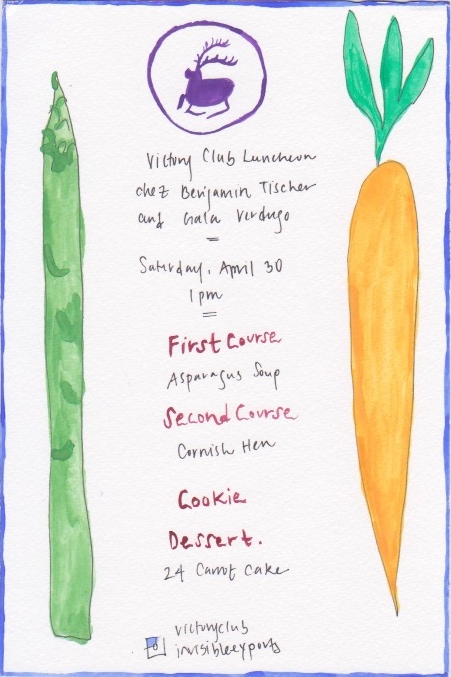 Victory Club Luncheon
chez Benjamin Tischer
and Gala Verdugo
Saturday, April 30
1pm
First Course
Asparagus Soup
Second Course
Cornish Hen
Cookie
Dessert.
24 Carrot Cake
victoryclub
invisibleexports